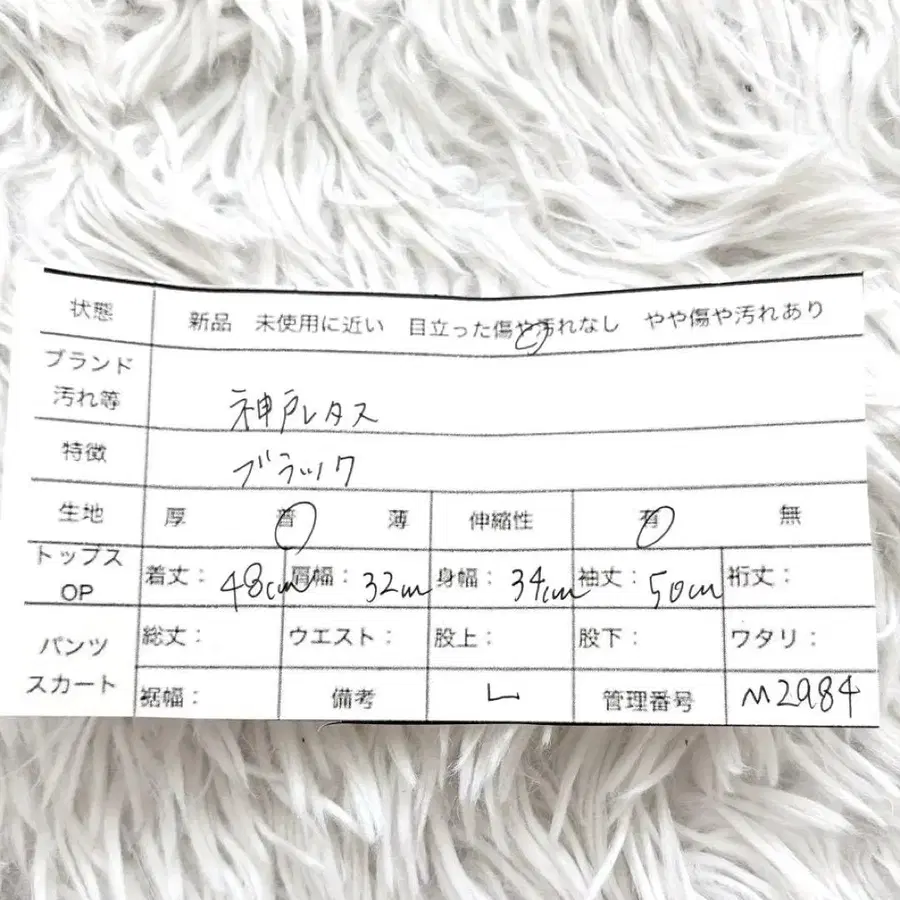 状態 新品 未使用に近い 目立った傷や汚れなし やや傷や汚れあり
ブランド
汚れ等 神戸レタス
特徴 ブラック
生地 厚 普 薄 伸縮性 有 無
トップス
OP 着丈: 48cm 肩幅: 32cm 身幅: 34cm 袖丈: 50cm 裄丈:
パンツ
スカート 総丈: ウエスト: 股上: 股下: ワタリ:
裾幅: 備考 L 管理番号 M2984